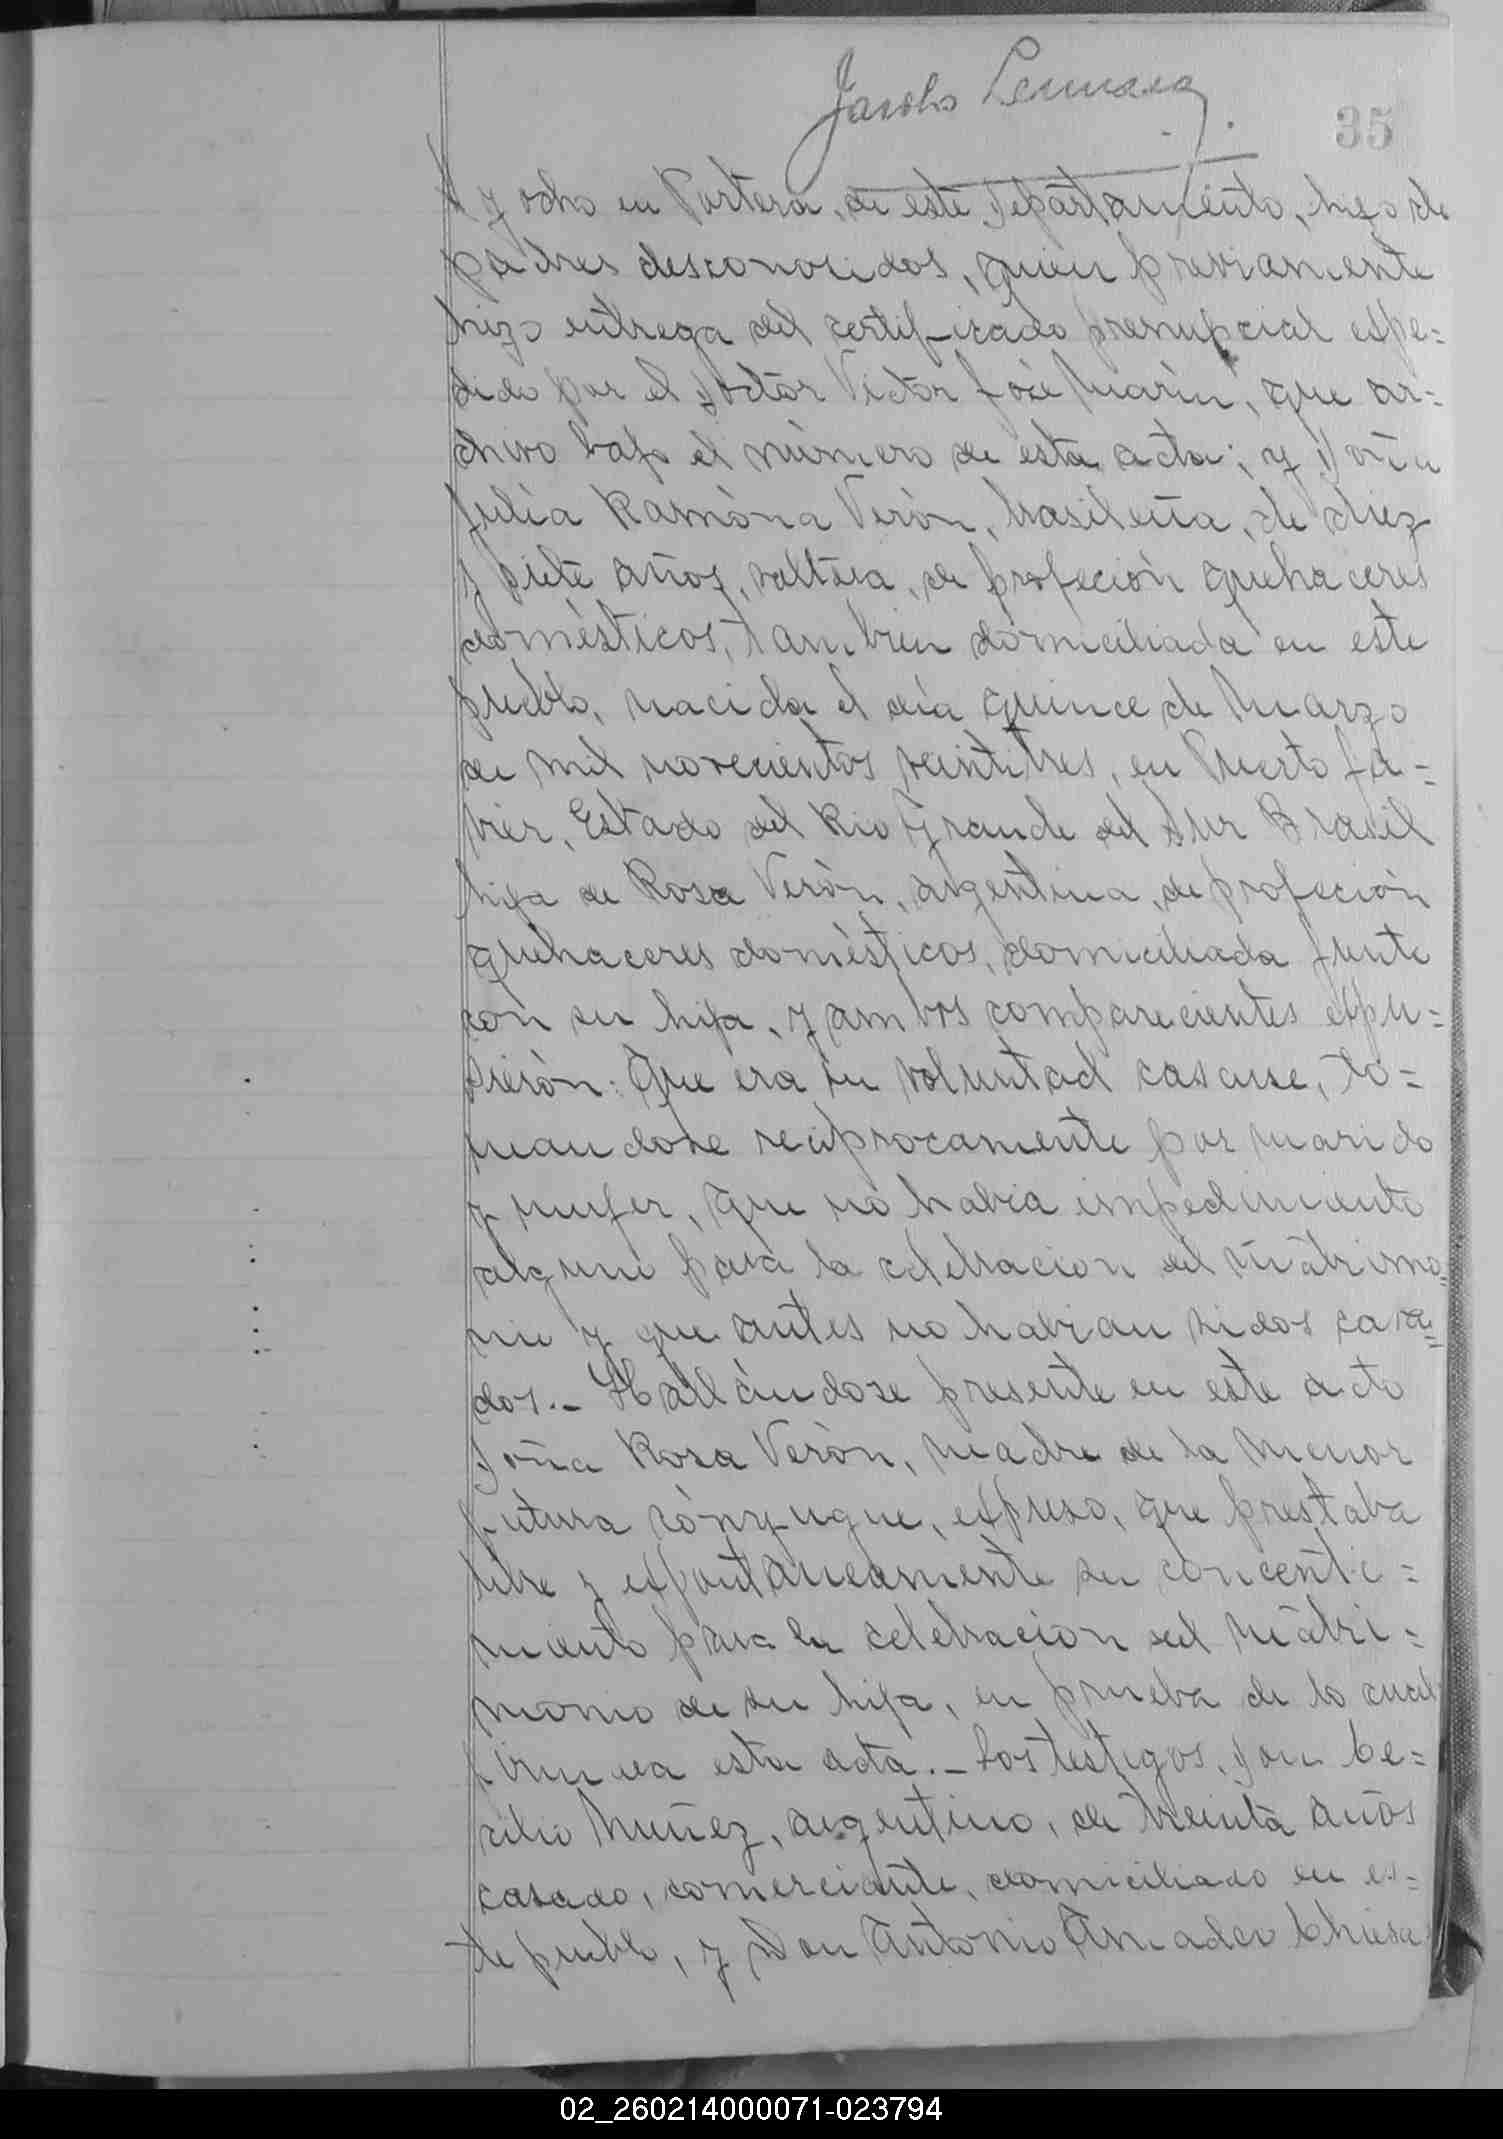 Jacobo
35
y ocho en Portera, de este Departamiento, hijo de
padres desconocidos, quien previamente
hizo entrega del certificado prenupcial espe=
dido por el Doctor Victor José Marin, que ar=
chivo bajo el número de esta acta; y Doña
Julia Ramòna Veròn, brasileña, de diez
y siete años, soltera, de profeciòn quehaceres
domèsticos, tambien domiciliada en este
pueblo, nacida el dìa quince de Marzo
de mil novecientos veintitres, en Puerto Ja=
vier, Estado del Rio Grande del Sur Brasil
hija de Rosa Veròn, argentina, de profeciòn
quehaceres domèsticos, domiciliada junto
con su hija, y ambos comparecientes expu=
sieròn: Que era su voluntad casarse, to=
mandose reciprocamente por marido
y mujer, que no habìa impedimiento
alguno para la celebracion del matrimo=
nio y que antes no habìan sidos casa=
dos.- Hallàndose presente en este acto
Doña Rosa Veròn, madre de la menor
futura cònyugue, expuso, que prestaba
libre y expontaneamente su concenti=
miento para la celebracion del matri=
monio de su hija, en prueba de lo cual
firmara esta acta.- Los testigos, Don Ce=
cilio Nuñez, argentino, de treinta años
casado, comerciante, domiciliado en es=
te pueblo, y Don Antonio Amadeo Chiesa
02_260214000071-023794